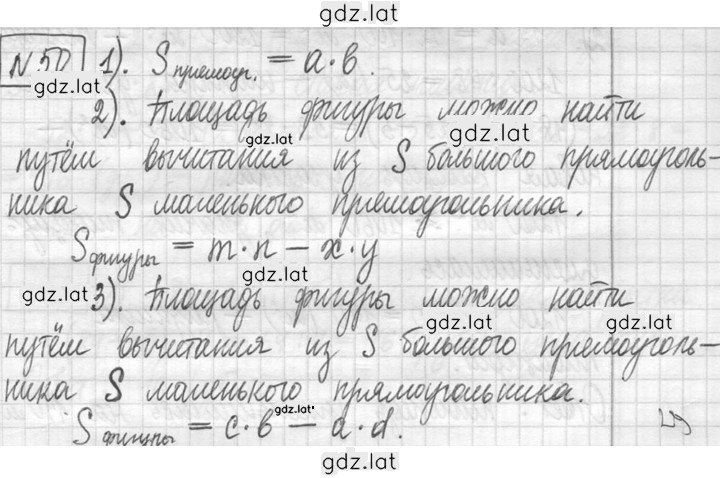 gdz.lat
N 50 1). S прямоуг. = a·b.
gdz.lat
2). Площадь фигуры можно найти
gdz.lat gdz.lat
путём вычитания из S большого прямоуголь-
ника S маленького прямоугольника.
S фигуры = m·n - x·y
gdz.lat
gdz.lat 3). Площадь фигуры можно найти
gdz.lat gdz.lat
путём вычитания из S большого прямоуголь-
ника S маленького прямоугольника.
gdz.lat
S фигуры = c·b - a·d.
gdz.lat